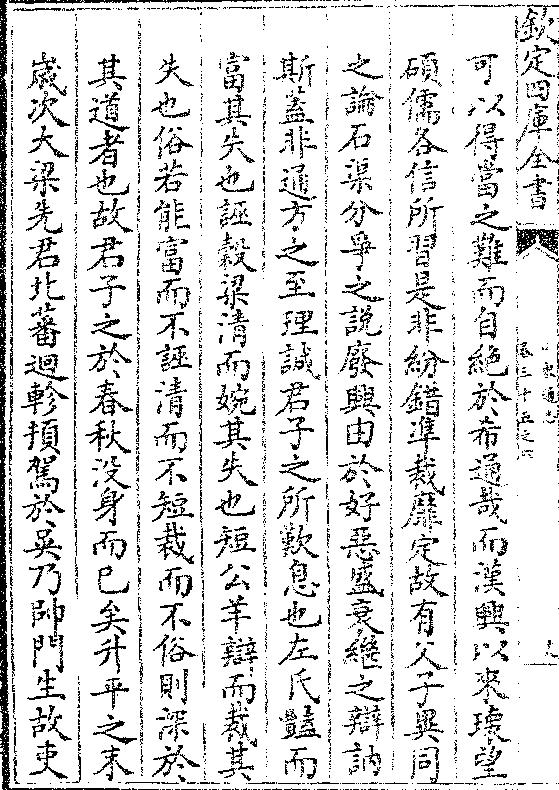 欽定四庫全書
卷三十五之六
可以得當之難而自絶於希通哉而漢興以來瓌望
碩儒各信所習是非紛錯準裁靡定故有父子異同
之論石渠分爭之說廢興由於好惡盛衰繼之辯訥
斯蓋非通方之至理誠君子之所歎息也左氏豔而
富其失也誣穀梁清而婉其失也短公羊辯而裁其
失也俗若能富而不誣清而不短裁而不俗則深於
其道者也故君子之於春秋没身而已矣升平之末
歲次大梁先君北蕃迴軫頓駕於吳乃帥門生故吏